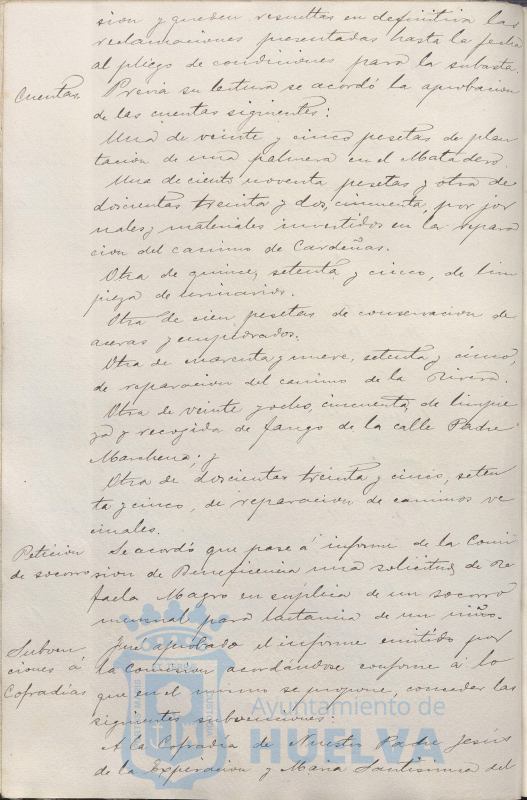 sion y queden resueltas en definitiva las
reclamaciones presentadas hasta la fecha
al pliego de condiciones para la subasta.
Cuentas. Previa su lectura se acordó la aprobacion
de las cuentas siguientes:
Una de veinte y cinco pesetas de plan
tacion de una palmera en el Matadero.
Una de ciento noventa pesetas y otra de
doscientas treinta y dos, cincuenta, por jor
nales y materiales invertidos en la repara
cion del camino de Cardeñas.
Otra de quince, setenta y cinco, de lim
pieza de urinarios.
Otra de cien pesetas de conservacion de
aceras y empedrados.
Otra de cuarenta y nueve, setenta y cinco,
de reparacion del camino de la Rivera.
Otra de veinte y ocho, cincuenta, de limpie
za y recogida de fango de la calle Padre
Marchena; y
Otra de doscientas treinta y cinco, seten
ta y cinco, de reparacion de caminos ve
cinales.
Peticion de socorro Se acordó que pase á informe de la Comi
sion de Beneficencia una solicitud de Ra
faela Magro en súplica de un socorro
mensual para lactancia de un niño.
Subven, ciones á Cofradías Fué aprobado el informe emitido por
la Comision acordándose conforme á lo
que en el mismo se propone, conceder las
siguientes subvenciones:
A la Cofradia de Nuestro Padre Jesús
de la Expiracion y Maria Santísima del
Ayuntamiento de
HUELVA